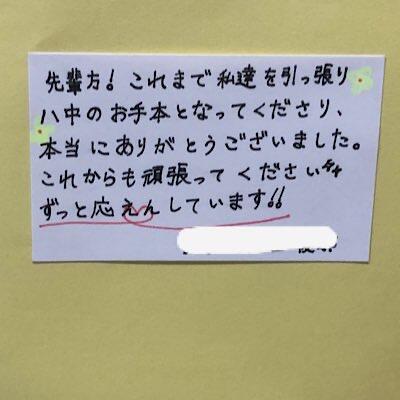 先輩方！これまで私達を引っ張り
八中のお手本となってくださり、
本当にありがとうございました。
これからも頑張ってください
ずっと応えんしています!!